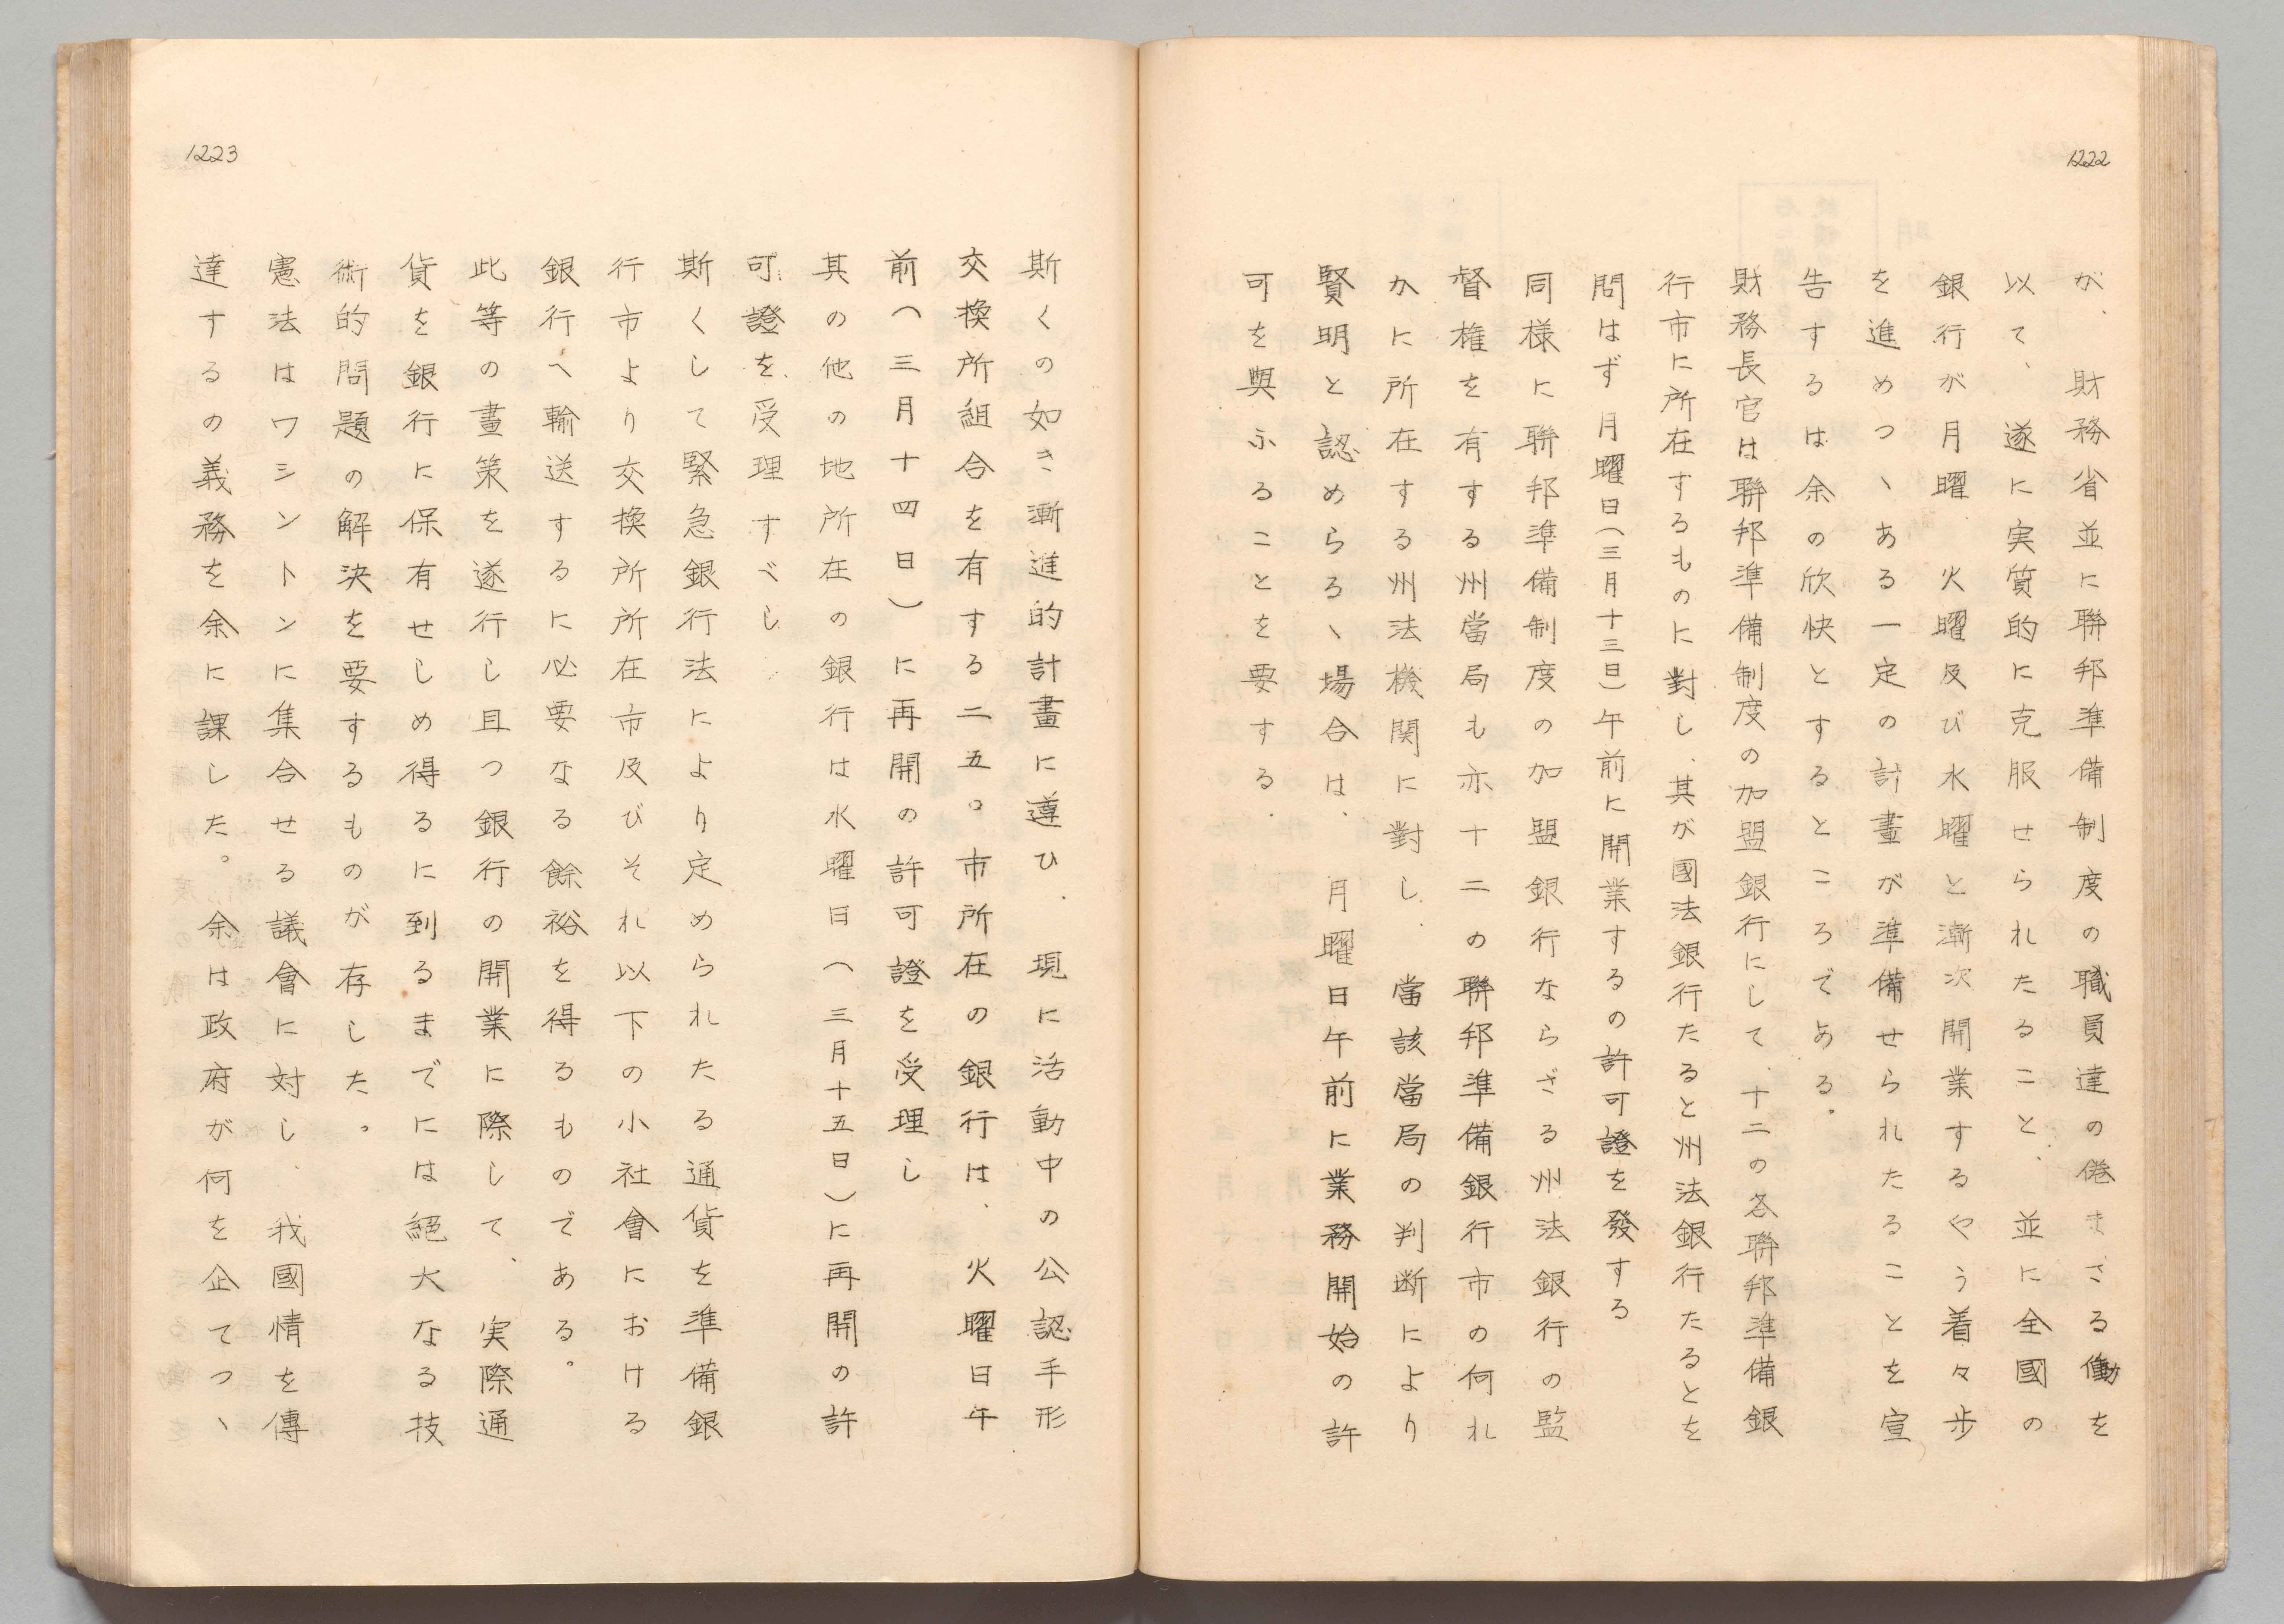 1222
が、財務省並に聯邦準備制度の職員達の倦まざる働を
以て、遂に実質的に克服せられたること、並に全國の
銀行が月曜　火曜及び水曜と漸次開業するやう着々歩
を進めつヽある一定の計畫が準備せられたることを宣
告するは余の欣快とするところである。
財務長官は聯邦準備制度の加盟銀行にして、十二の各聯邦準備銀
行市に所在するものに對し、其が國法銀行たると州法銀行たるとを
問はず月曜日（三月十三日）午前に開業するの許可證を發する
同様に聯邦準備制度の加盟銀行ならざる州法銀行の監
督権を有する州當局も亦十二の聯邦準備銀行市の何れ
かに所在する州法機関に對し、當該當局の判断により
賢明と認めらるヽ場合は、月曜日午前に業務開始の許
可を與ふることを要する.
1223
斯くの如き漸進的計畫に遵ひ、現に活動中の公認手形
交換所組合を有する二五〇市所在の銀行は、火曜日午
前（三月十四日）に再開の許可證を受理し
其の他の地所在の銀行は水曜日（三月十五日）に再開の許
可證を受理すべし
斯くして緊急銀行法により定められたる通貨を準備銀
行市より交換所所在市及びそれ以下の小社會における
銀行へ輸送するに必要なる餘裕を得るものである。
此等の畫策を遂行し且つ銀行の開業に際して、実際通
貨を銀行に保有せしめ得るに到るまでには絕大なる技
術的問題の解決を要するものが存した。
憲法はワシントンに集合せる議會に対し、我國情を傳
達するの義務を余に課した。余は政府が何を企てつヽ